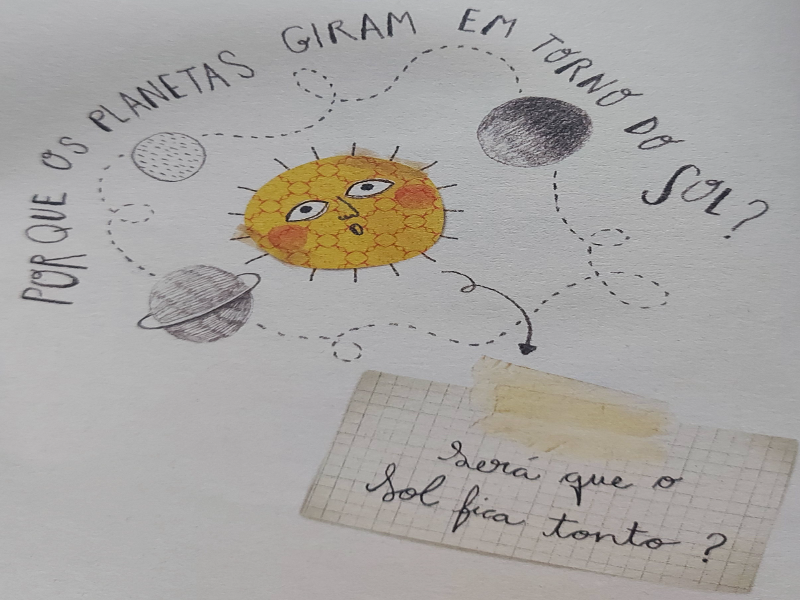 POR QUE OS PLANETAS GIRAM EM TORNO DO SOL?
Será que o
Sol fica tonto?